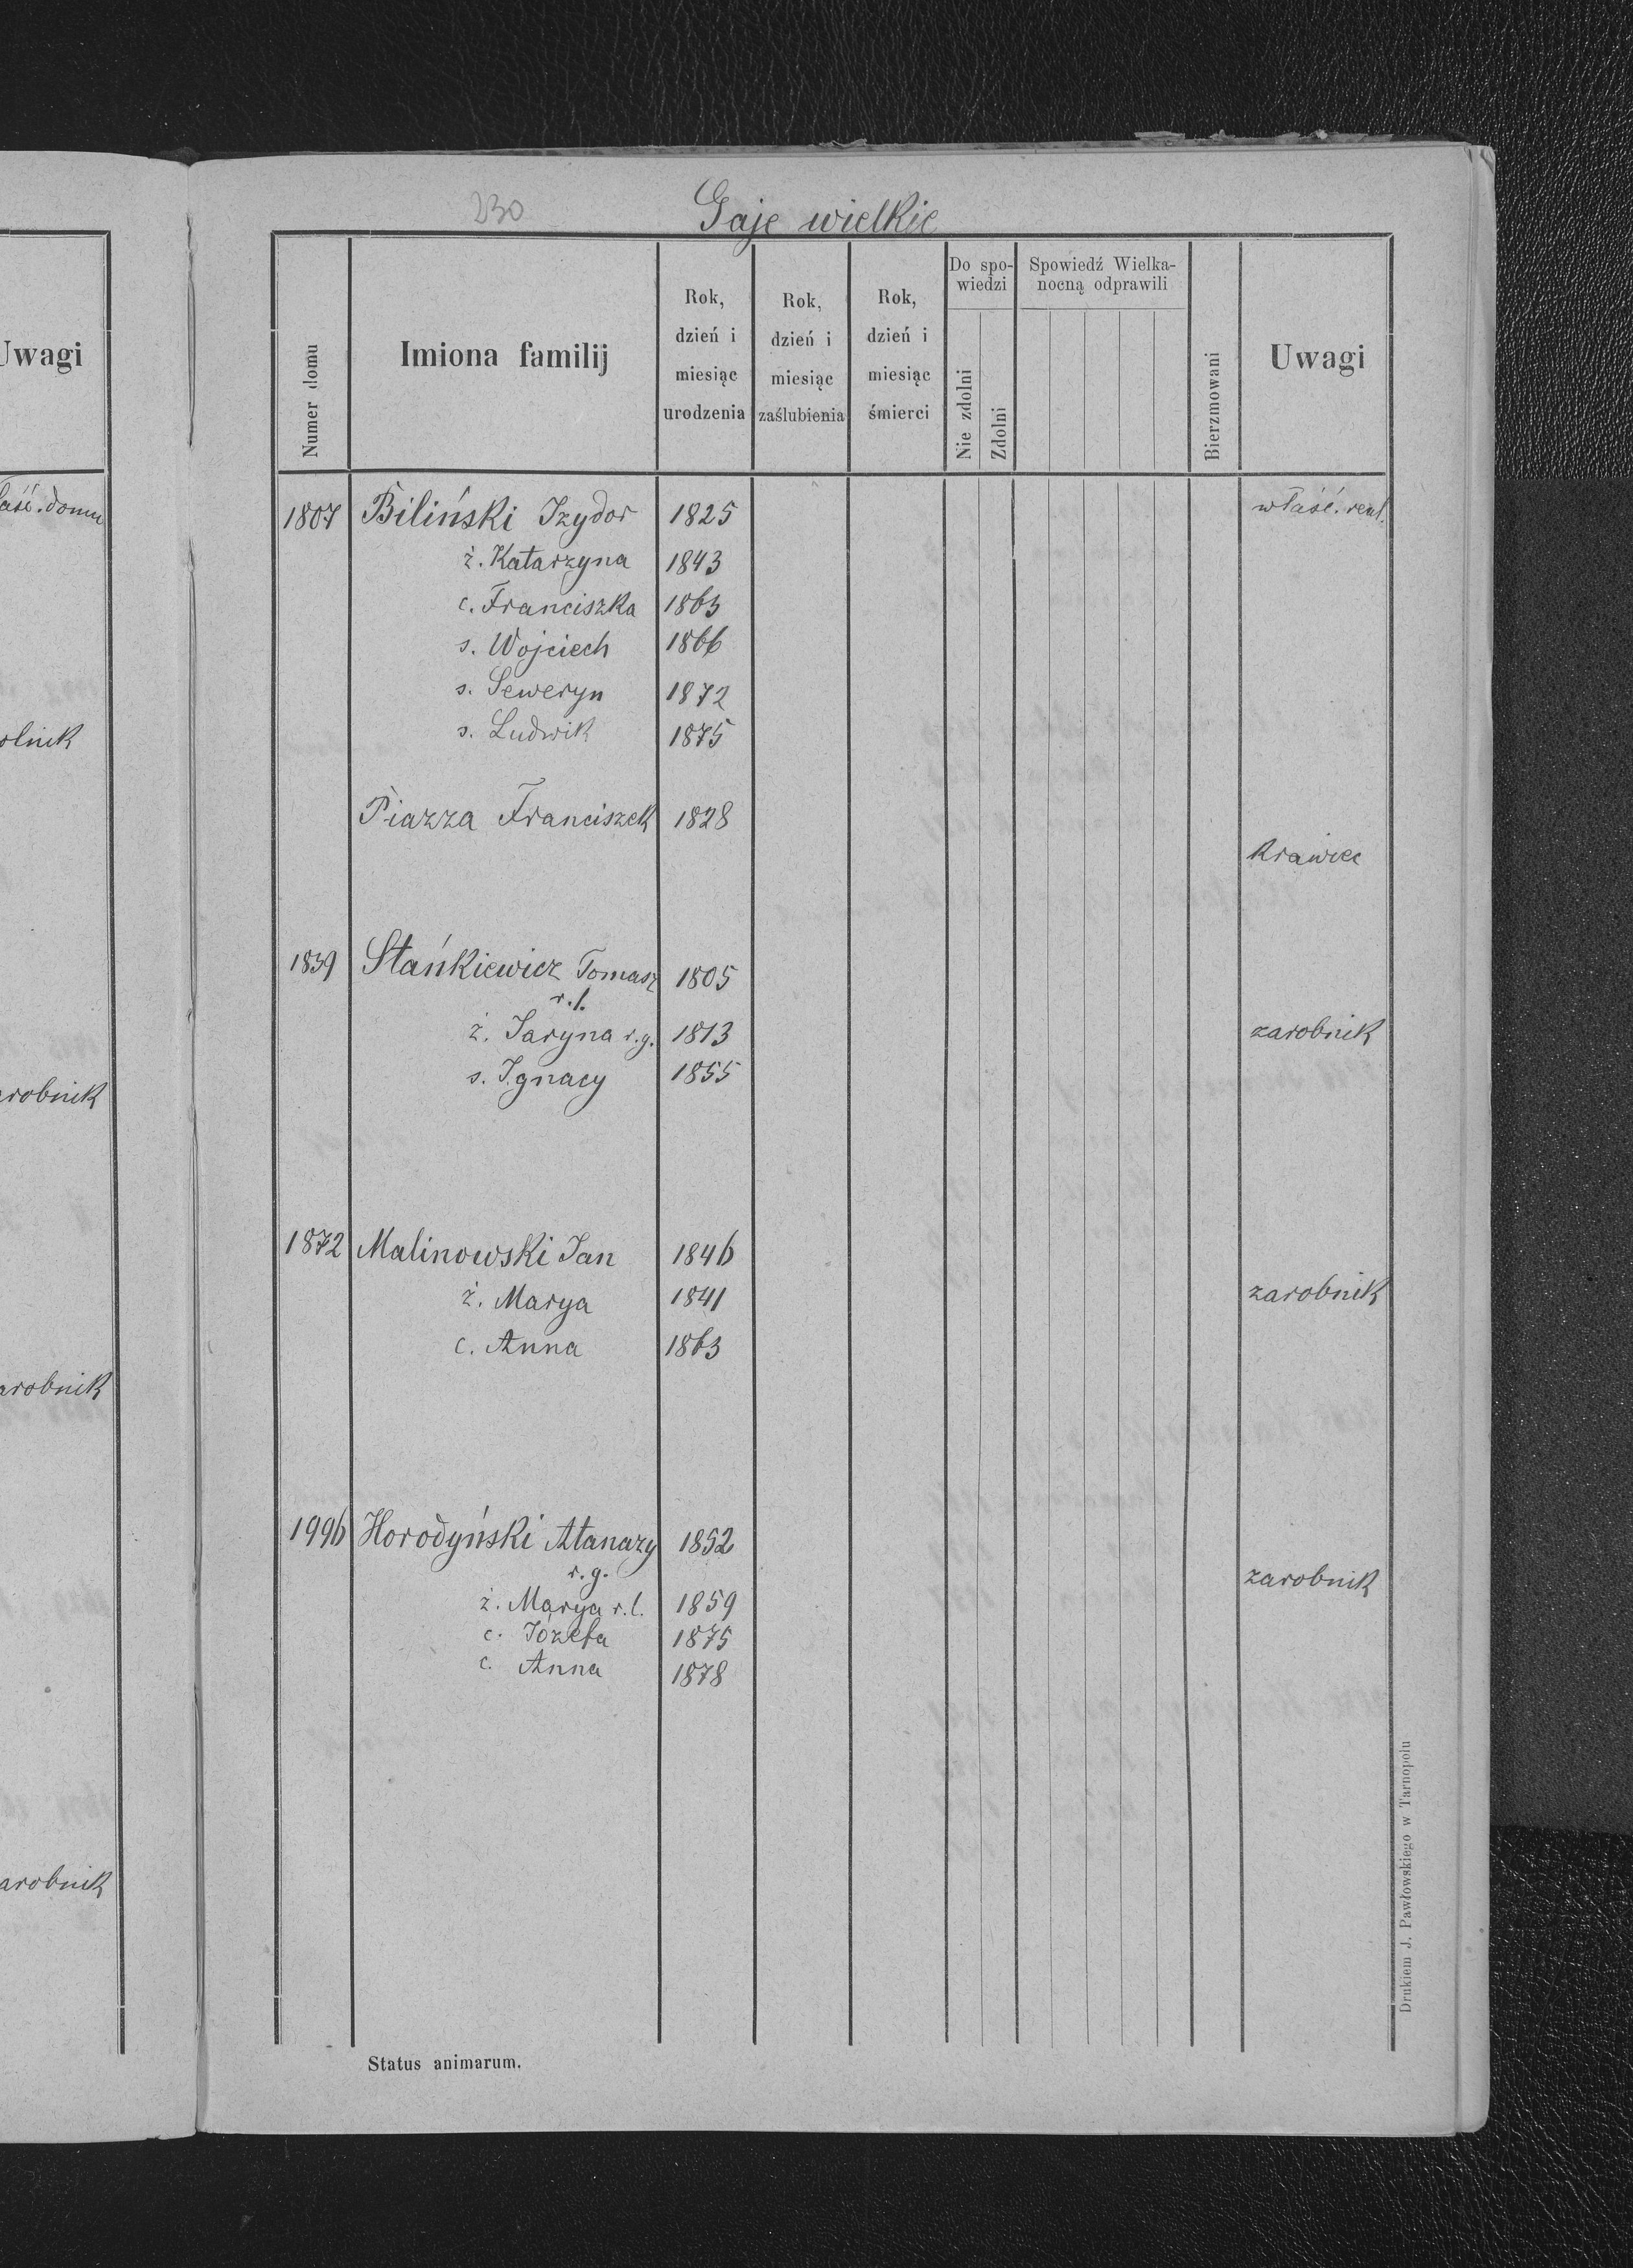 230 Gaje wielkie
Uwagi
łaść. domu
olnik
arobnik
arobnik
arobnik
Numer domu
Imiona familij
Rok, dzień i miesiąc urodzenia
Rok, dzień i miesiąc zaślubienia
Rok, dzień i miesiąc śmierci
Do spo-
wiedzi
Nie zdolni
Zdolni
Spowiedź Wielka-
nocną odprawili
Bierzmowani
Uwagi
1807 Biliński Izydor 1825 właść. real.
ż. Katarzyna 1843
c. Franciszka 1863
s. Wojciech 1866
s. Seweryn 1872
s. Ludwik 1875
Piazza Franciszek 1828
Krawiec
1839 Stańkiewicz Tomasz 1805
r. l.
ż. Jaryna r. g. 1813 zarobnik
s. Ignacy 1855
1872 Malinowski Jan 1846
ż. Marya 1841 zarobnik
c. Anna 1863
1996 Horodyński Atanazy 1852
r. g. zarobnik
ż. Marya r. l. 1859
c. Józefa 1875
c. Anna 1878
Status animarum.
Drukiem J. Pawłowskiego w Tarnopolu